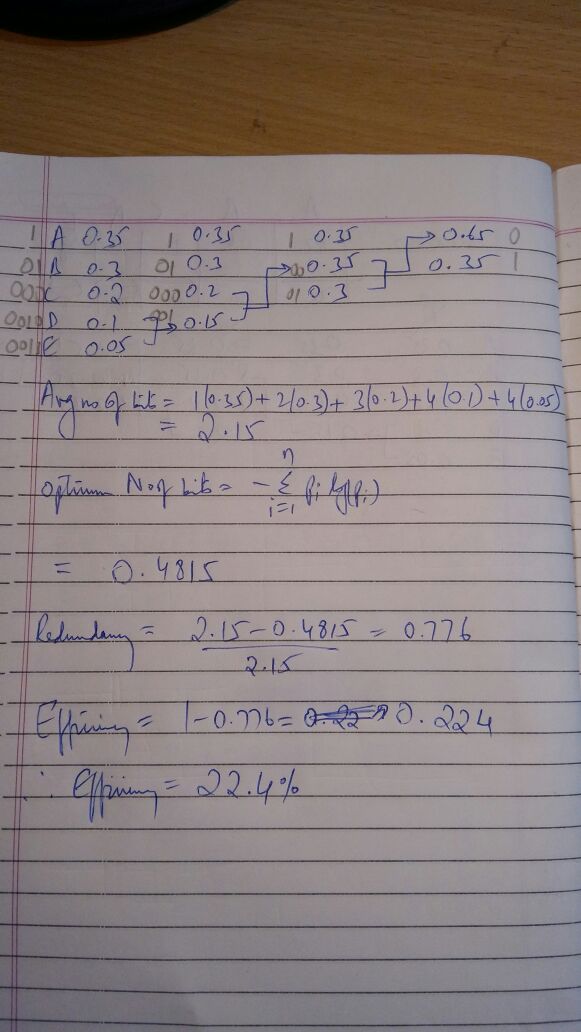 1 A 0.35 1 0.35 1 0.35 0.65 0
01 B 0.3 01 0.3 00 0.35 0.35 1
000 C 0.2 000 0.2 01 0.3
0010 D 0.1 001 0.15
0011 E 0.05
Avg no of bits = 1(0.35) + 2(0.3) + 3(0.2) + 4(0.1) + 4(0.05)
= 2.15
optimum No of bits = - n Σ i=1 Pi log(Pi)
= 0.4815
Redundancy = 2.15 - 0.4815 / 2.15 = 0.776
Efficiency = 1 - 0.776 = 0.224
∴ Efficiency = 22.4%